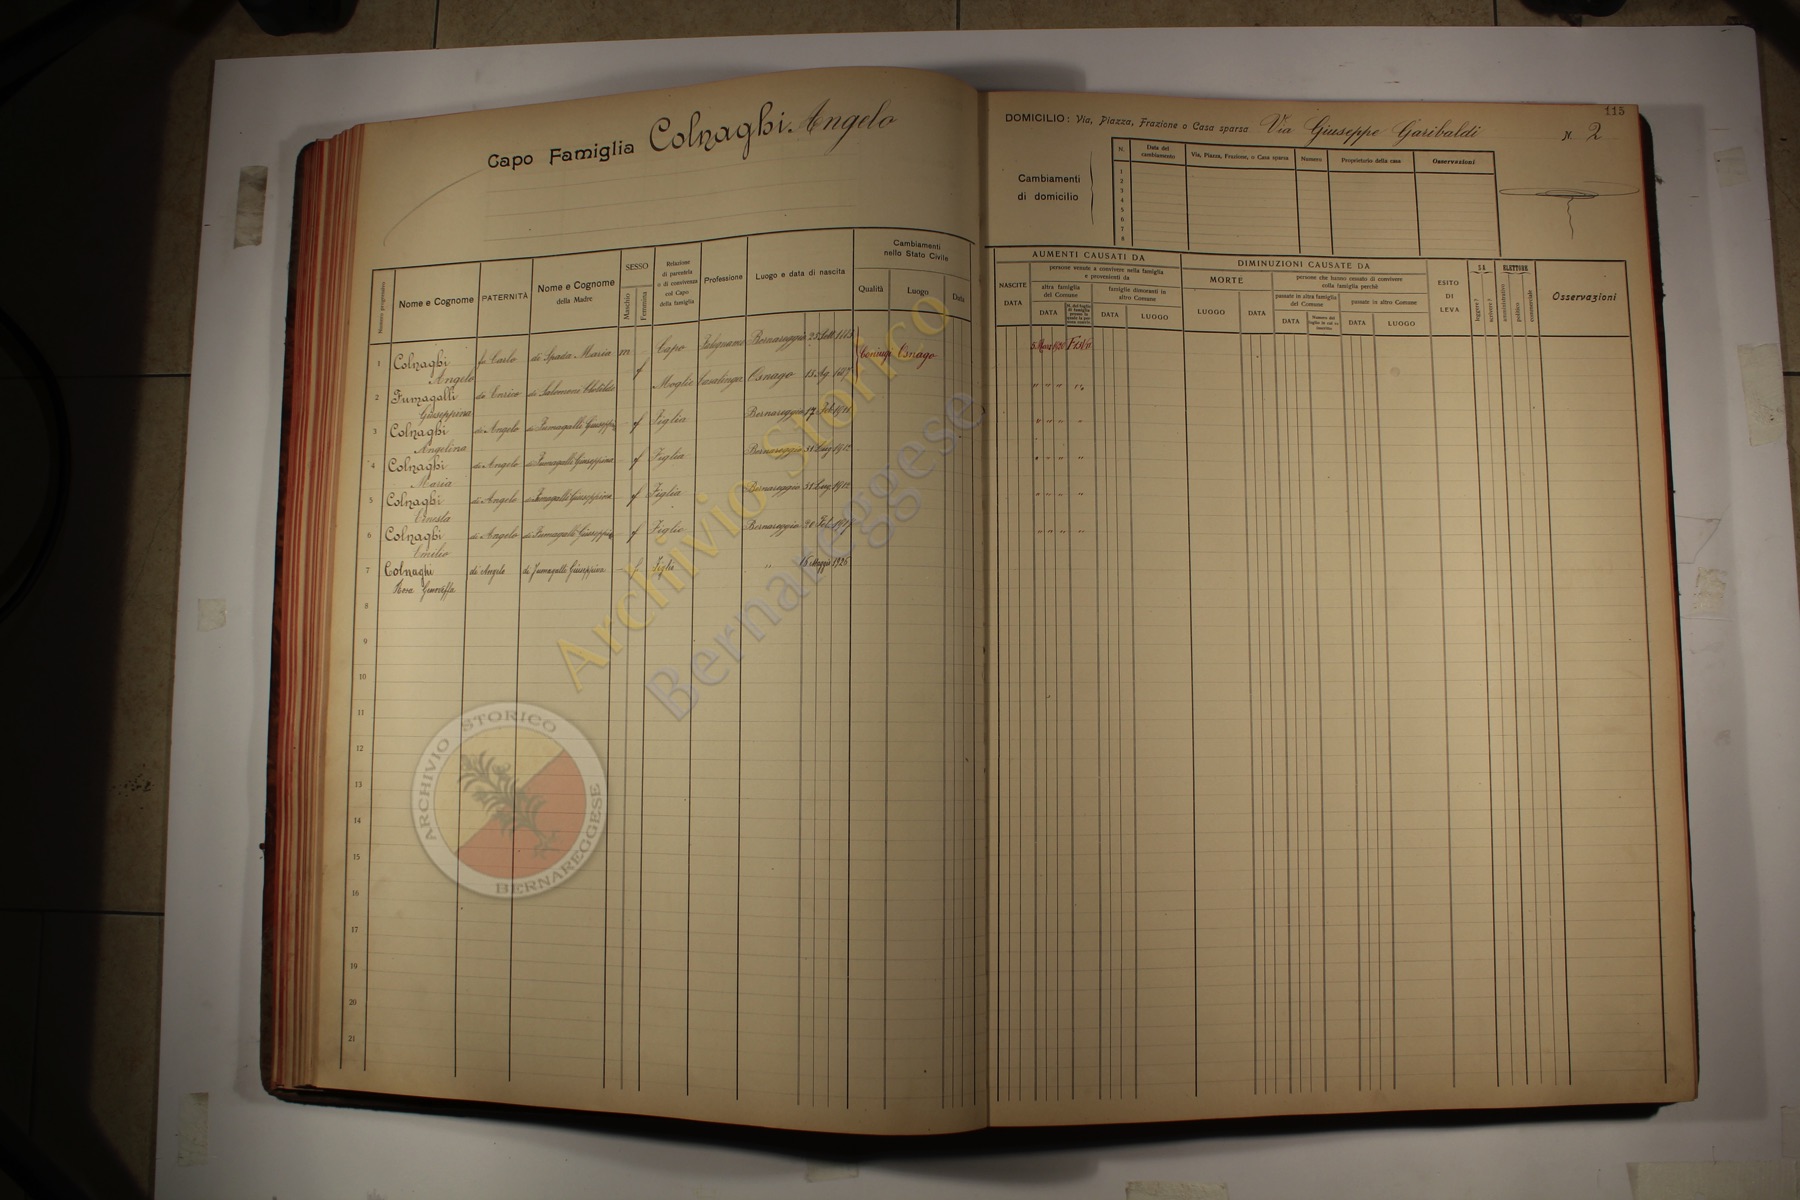 Capo Famiglia Colnaghi Angelo
115
DOMICILIO: Via, Piazza, Frazione o Casa sparsa Via Giuseppe Garibaldi N. 2
Cambiamenti
di domicilio
N. Data del cambiamento Via, Piazza, Frazione, o Casa sparsa Numero Proprietario della casa Osservazioni
1
2
3
4
5
6
7
8
Numero progressivo
Nome e Cognome
PATERNITÀ
Nome e Cognome
della Madre
SESSO
Maschio
Femmina
Relazione
di parentela
o di convivenza
col Capo
della famiglia
Professione
Luogo e data di nascita
Cambiamenti
nello Stato Civile
Qualità Luogo Data
AUMENTI CAUSATI DA
NASCITE
DATA
persone venute a convivere nella famiglia
e provenienti da
altra famiglia
del Comune
DATA
famiglie dimoranti in
altro Comune
DATA LUOGO
DIMINUZIONI CAUSATE DA
MORTE
LUOGO DATA
persone che hanno cessato di convivere
colla famiglia perchè
passate in altra famiglia
del Comune
DATA
passate in altro Comune
DATA LUOGO
ESITO
DI
LEVA
SA
leggere?
scrivere?
ELETTORE
amministrativo
politico
commerciale
Osservazioni
1 Colnaghi fu Carlo di Spada Maria m Capo Bernareggio Osnago
Angelo
2 Fumagalli di Enrico di Salomoni Clotilde f Moglie Casalinga Osnago
Giuseppina
3 Colnaghi di Angelo di Fumagalli Giuseppina f Figlia Bernareggio
Angelina
4 Colnaghi di Angelo di Fumagalli Giuseppina f Figlia Bernareggio 31 Lug 1912
Maria
5 Colnaghi di Angelo di Fumagalli Giuseppina f Figlia Bernareggio 31 Lug 1912
Ernesta
6 Colnaghi di Angelo di Fumagalli Giuseppina f Figlio Bernareggio
Emilio
7 Colnaghi di Angelo di Fumagalli Giuseppina f Figlia " 16 Maggio 1926
Rosa
8
9
10
11
12
13
14
15
16
17
18
19
20
21
Archivio Storico
Bernareggese
ARCHIVIO STORICO
BERNAREGGESE